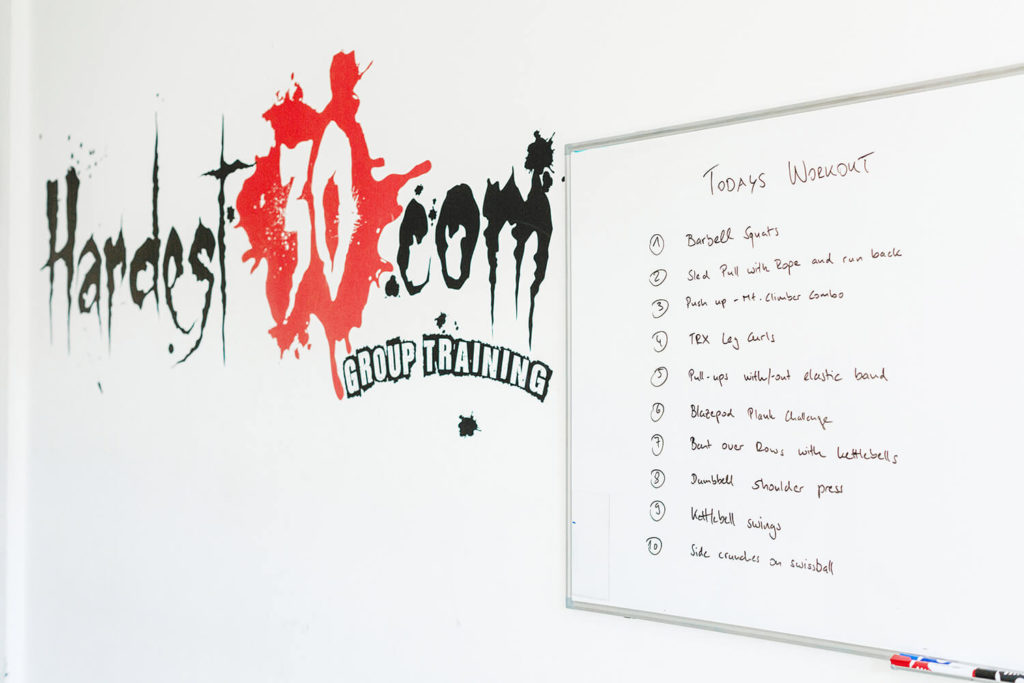 Hardest30.com
GROUP TRAINING
TODAYS WORKOUT
1 Barbell Squats
2 Sled Pull with Rope and run back
3 Push up - Mt. Climber Combo
4 TRX Leg Curls
5 Pull-ups with/-out elastic band
6 Blazepod Plank Challenge
7 Bent over Rows with kettlebells
8 Dumbbell shoulder press
9 Kettlebell swings
10 Side crunches on swissball